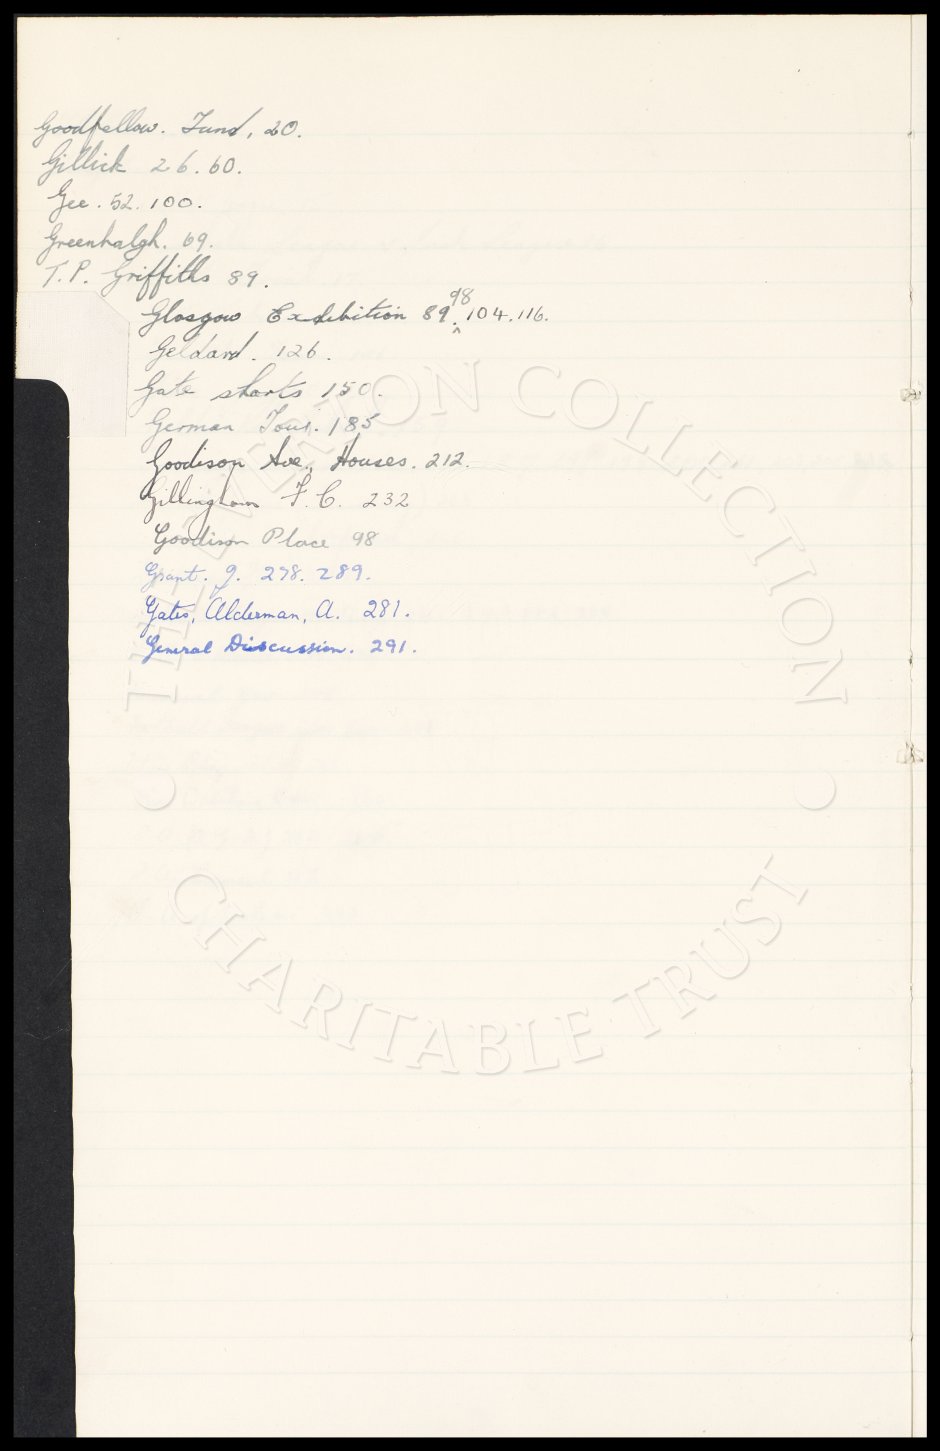 Goodfellow. Fund, 20.
Gillick 26. 60.
Gee. 52. 100.
Greenhalgh. 69.
T. P. Griffiths 89.
98
Glasgow Exhibition 89. 104. 116.
Geldard. 126.
Gate shorts 150.
German Tour. 185
Goodison Ave., Houses. 212.
Gillingham F. C. 232
Goodison Place 98
Grant. J. 278. 289.
Gates, Alderman, A. 281.
General Discussion. 291.
THE EVERTON COLLECTION
CHARITABLE TRUST